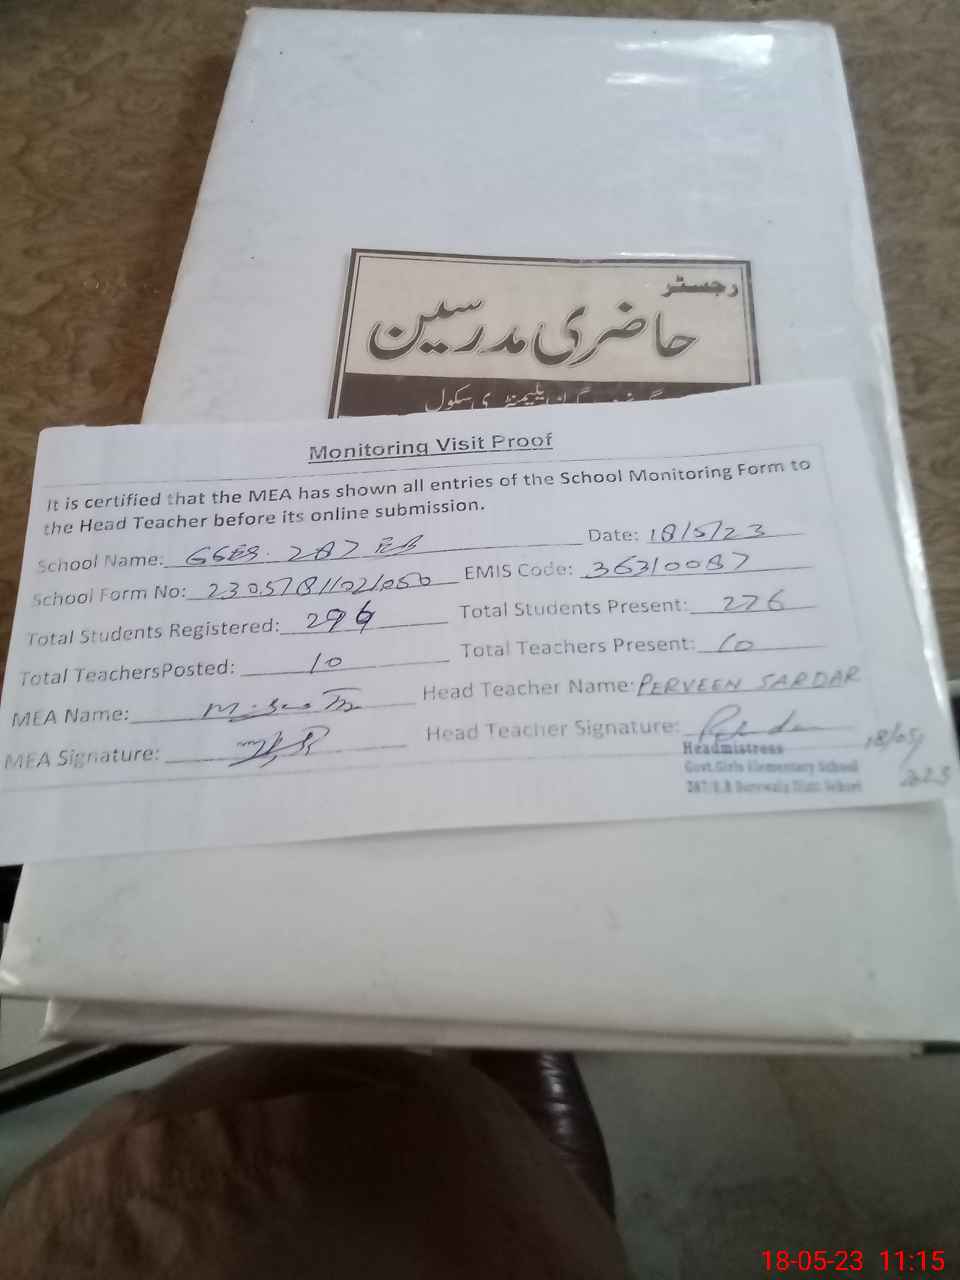 رجسٹر
حاضری مدرسین
ایلیمنٹری سکول
Monitoring Visit Proof
It is certified that the MEA has shown all entries of the School Monitoring Form to
the Head Teacher before its online submission.
School Name: GGES. 287 EB Date: 18/5/23
School Form No: EMIS Code: 36310087
Total Students Registered: 296 Total Students Present: 276
Total TeachersPosted: 10 Total Teachers Present: 10
MEA Name: Head Teacher Name: PERVEEN SARDAR
MEA Signature: Head Teacher Signature:
Headmistress 18/05/
Govt.Girls Elementary School 2023
287/E.B
18-05-23 11:15